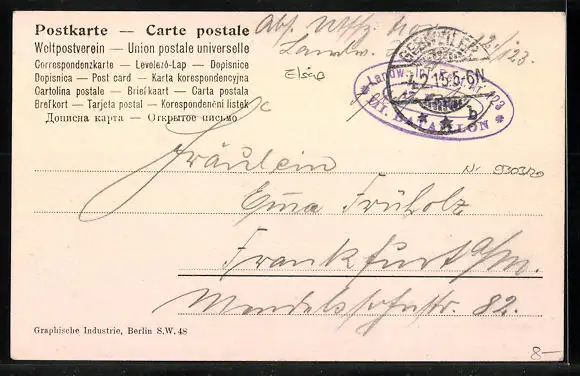 Postkarte — Carte postale
Weltpostverein — Union postale universelle
Correspondenzkarte — Levelező-Lap — Dopisnice
Dopisnica — Post card — Karta korespondencyjna
Cartolina postale — Briefkaart — Carta postala
Brefkort — Tarjeta postal — Korespondenčni listek
Дописна карта — Открытое письмо
Abs.
12./123.
Landw.
Elsaß
GEBWEILER
5-6N
b
Landw. Inf. 123
II. BATAILLON
Fräulein
Nr 9303/20
Frühholz
Frankfurt a/m.
Mendelssohnstr. 82.
Graphische Industrie, Berlin S.W. 48
8-